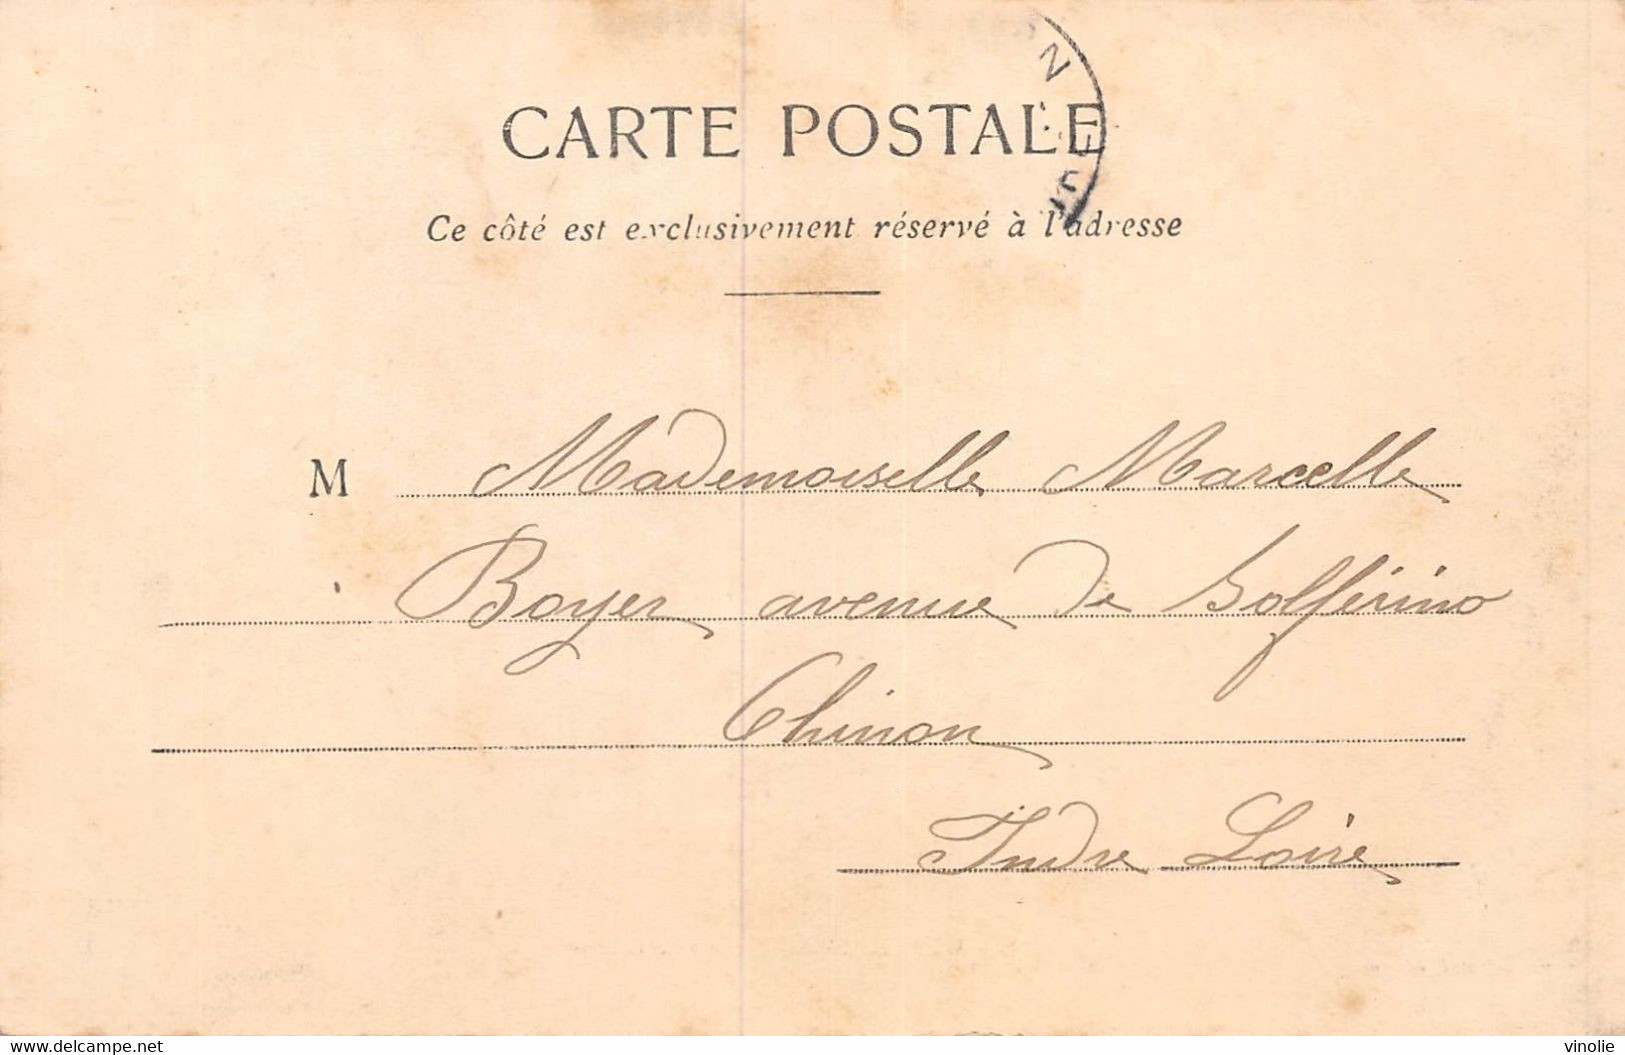 CARTE POSTALE
Ce côté est exclusivement réservé à l'adresse
M Mademoiselle Marcelle
Boyer avenue de Solférino
Chinon
Indre Loire
www.delcampe.net
vinolie